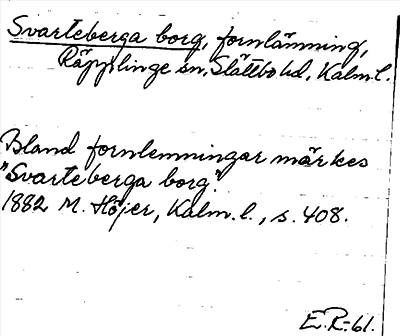 Svarteberga borg, fornlämning,
Räpplinge sn, Slättbo hd, Kalm.l.
Bland fornlemningar märkes
"Svarteberga borg."
1882 M. Höjer, Kalm. l., s. 408.
E.R-61.